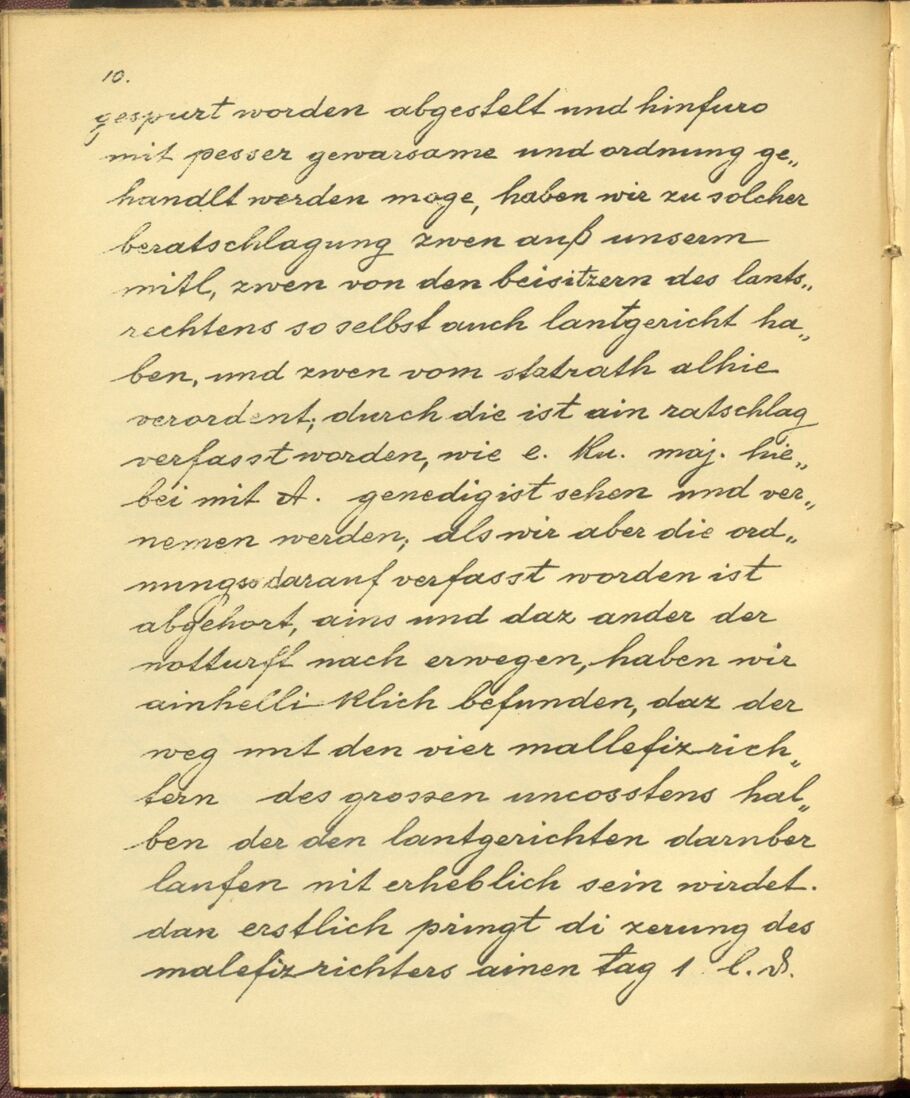 10.
gespurt worden abgestelt und hinfuro
mit pesser gewarsame und ordnung ge„
handlt werden moge, haben wir zu solcher
beratschlagung zwen auß unserm
mitl, zwen von den beisitzern des lants„
rechtens so selbst auch lantgericht ha„
ben, und zwen vom statrath alhie
verordent; durch die ist ain ratschlag
verfasst worden, wie e. ku. maj. hie„
bei mit A. genedigist sehen und ver„
nemen werden; als wir aber die ord„
nung so darauf verfasst worden ist
abgehort, ains und daz ander der
notturft nach erwegen, haben wir
ainhelli klich befunden, daz der
weg mit den vier mallefizrich„
tern des grossen uncosstens hal„
ben der den lantgerichten daruber
laufen nit erheblich sein wirdet.
dan erstlich pringt di zerung des
malefizrichters ainen tag 1 l. d.